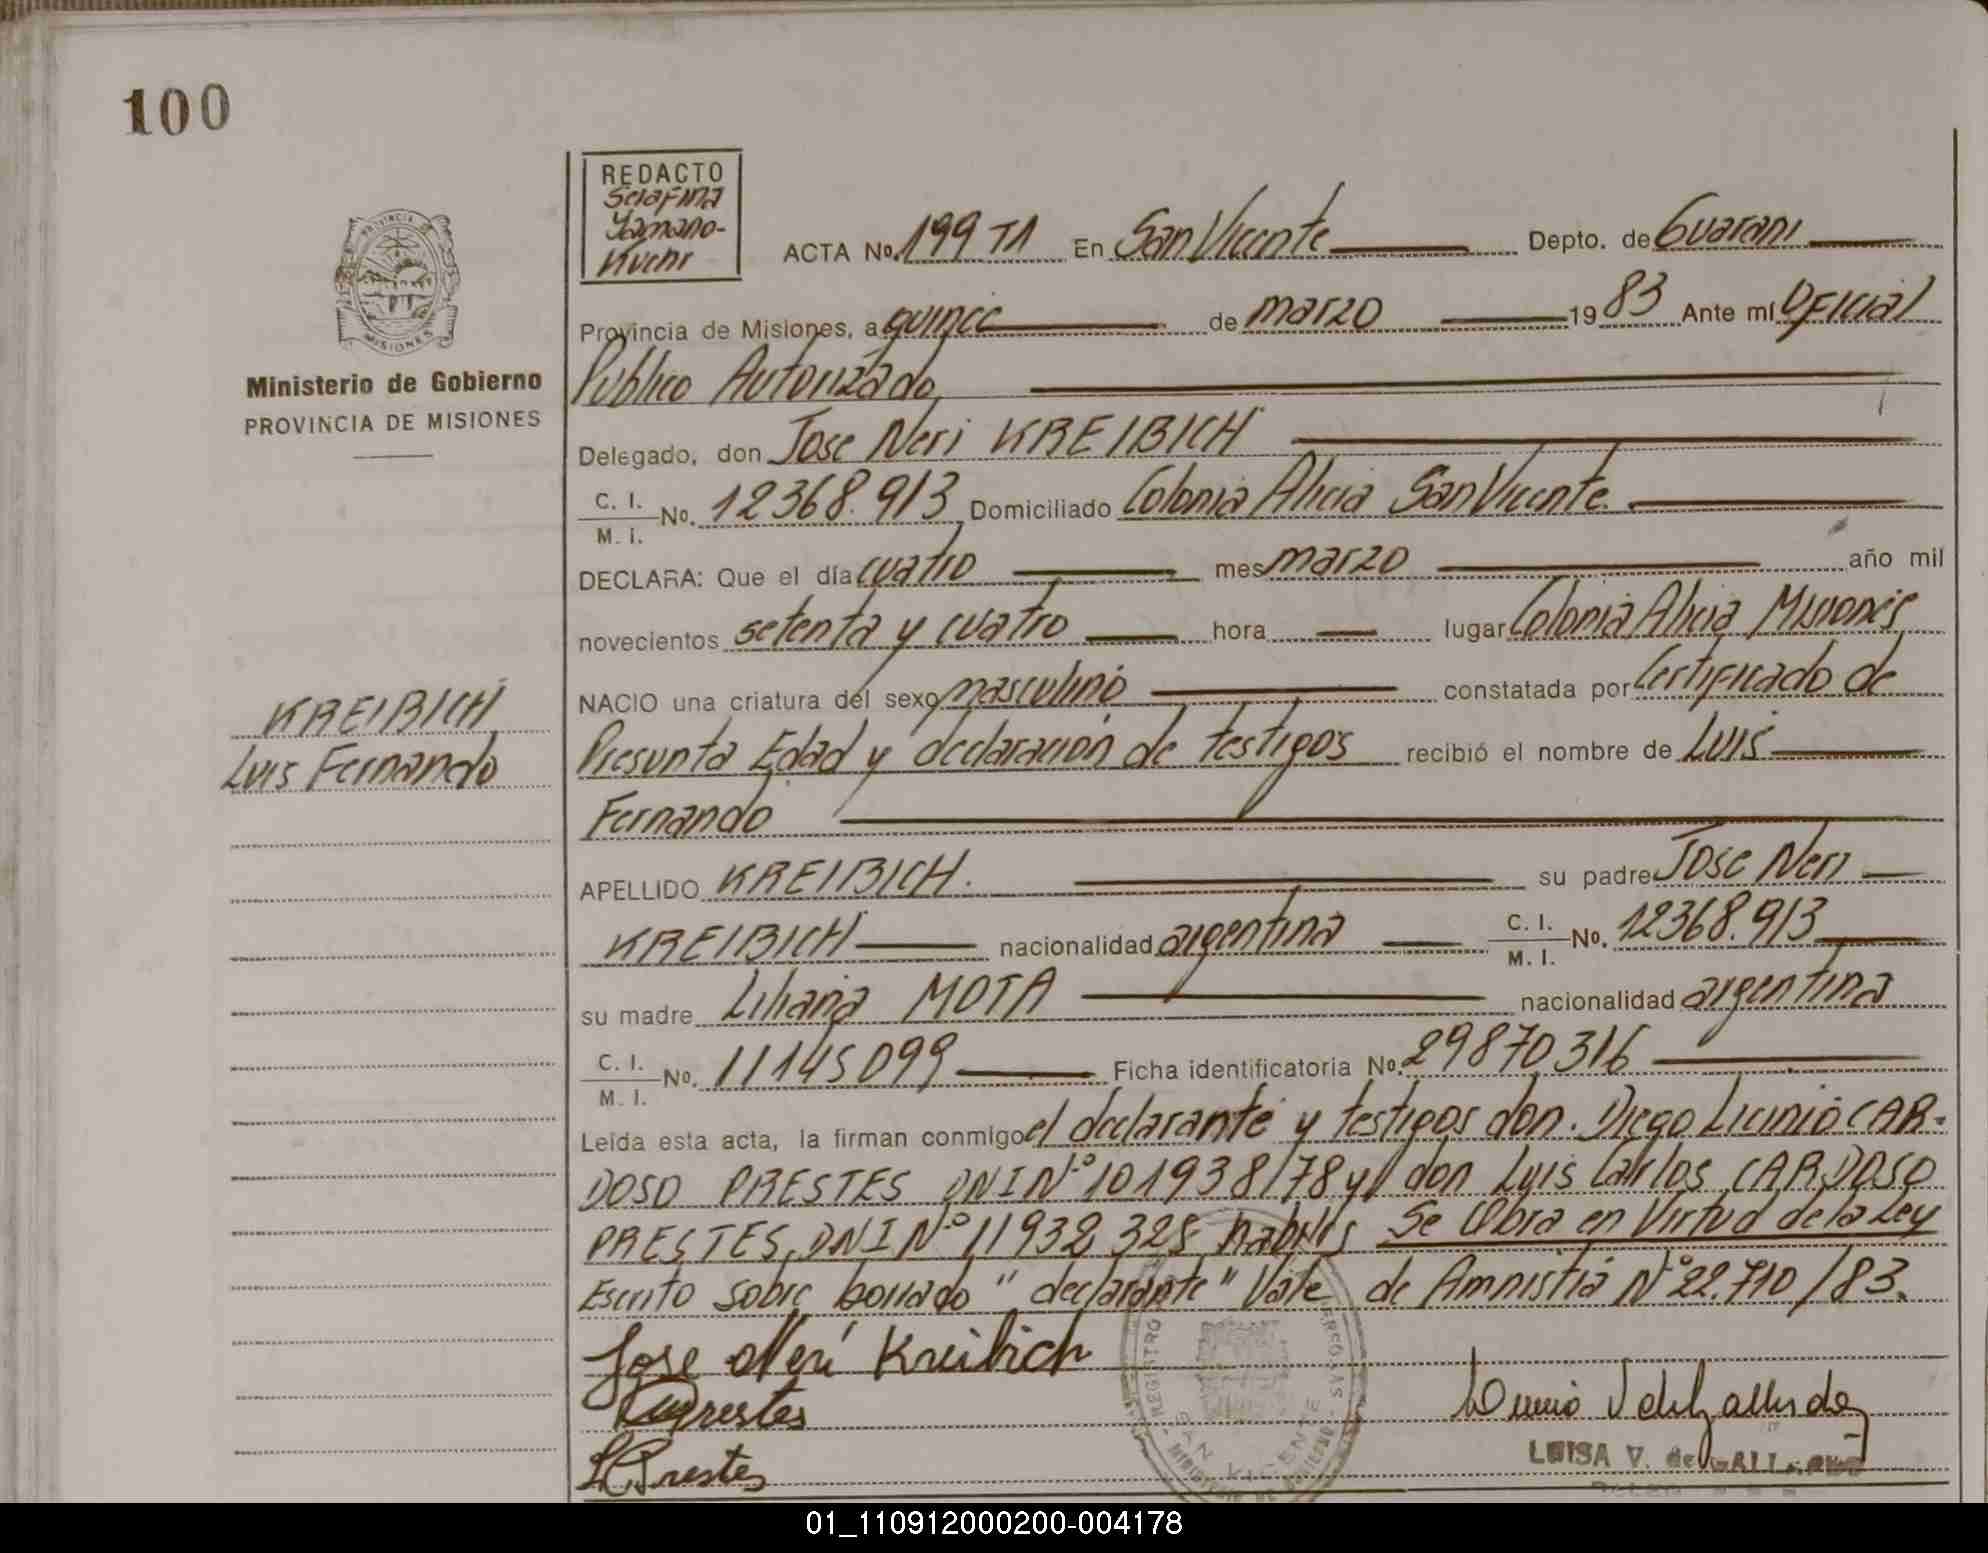 100
REDACTO
Serafina
Yamano-
Kuehr
ACTA No. 199 T1 En San Vicente Depto. de Guarani
Provincia de Misiones, a quince de marzo 1983 Ante mi Oficial
Publico Autorizado
Ministerio de Gobierno
PROVINCIA DE MISIONES
Delegado, don Jose Neri KREIBICH
C. I. M. I. No. 12368.913 Domiciliado Colonia Alicia San Vicente.
DECLARA: Que el día cuatro mes marzo año mil
novecientos setenta y cuatro hora lugar Colonia Alicia Misiones
NACIO una criatura del sexo masculino constatada por Certificado de
KREIBICH
Luis Fernando
Presunta Edad y declaracion de testigos recibió el nombre de Luis
Fernando
APELLIDO KREIBICH. su padre Jose Neri
KREIBICH nacionalidad argentina C. I. M. I. No. 12368.913
su madre Liliana MOTA nacionalidad argentina
C. I. M. I. No. 11145099 Ficha identificatoria No. 29870316
Leida esta acta, la firman conmigo el declarante y testigos don. Diego Licinio CAR-
DOSO PRESTES DNI Nº 101938178 y don Luis Carlos CARDOSO
PRESTES, DNI Nº 11932328 habiles Se Labra en Virtud de la Ley
Escrito sobre borrado "declarante" Vale de Amnistia Nº 22.710/83.
Jose Neri Kreibich
Prestes
LCPrestes
REGISTRO
SAN VICENTE
LUISA V. de GALLARDO
01_110912000200-004178